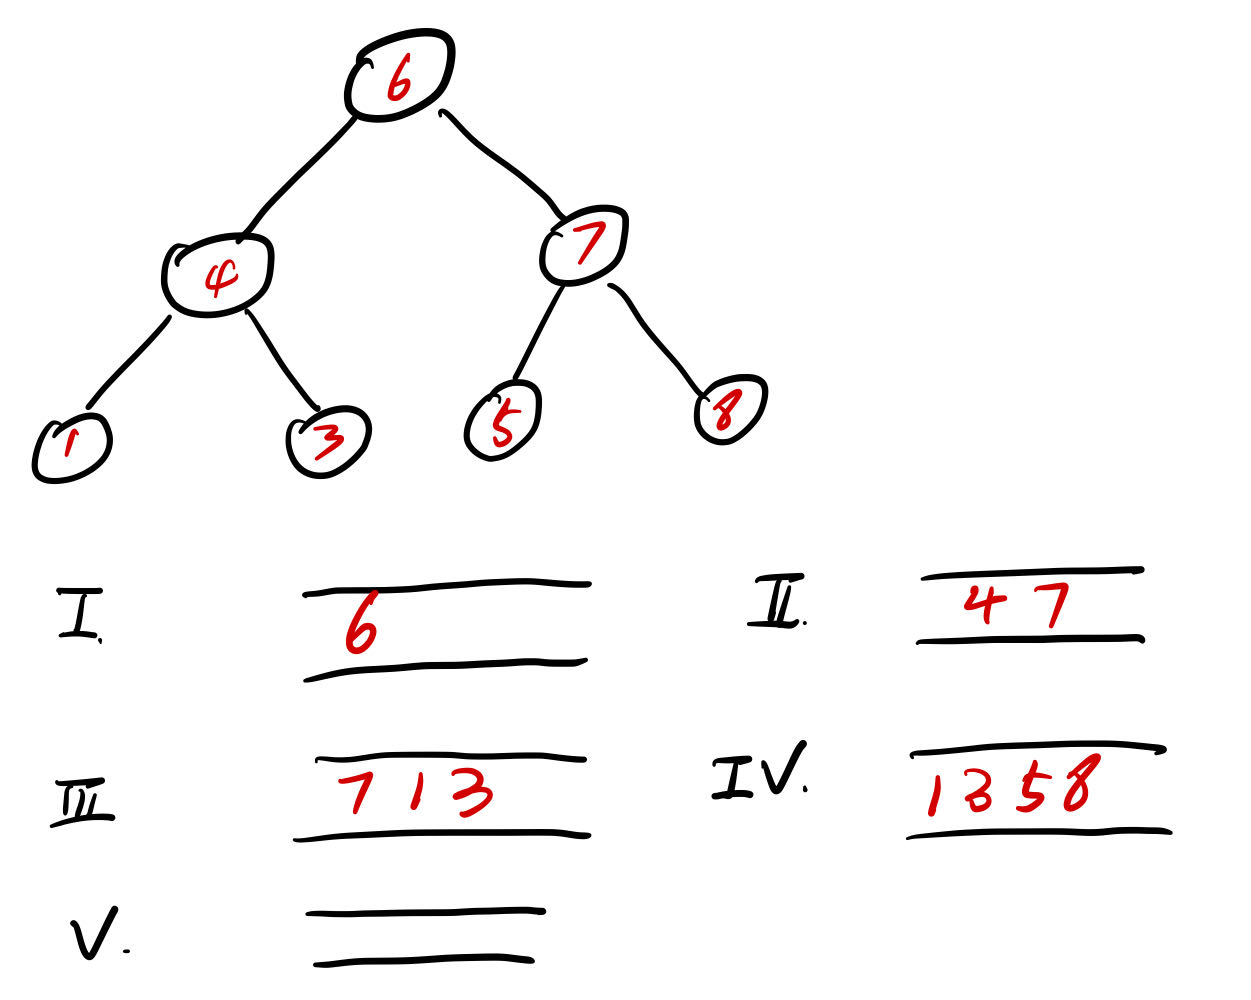 6
4 7
1 3 5 8
I. 6 II. 4 7
III 7 1 3 IV. 1 3 5 8
V.